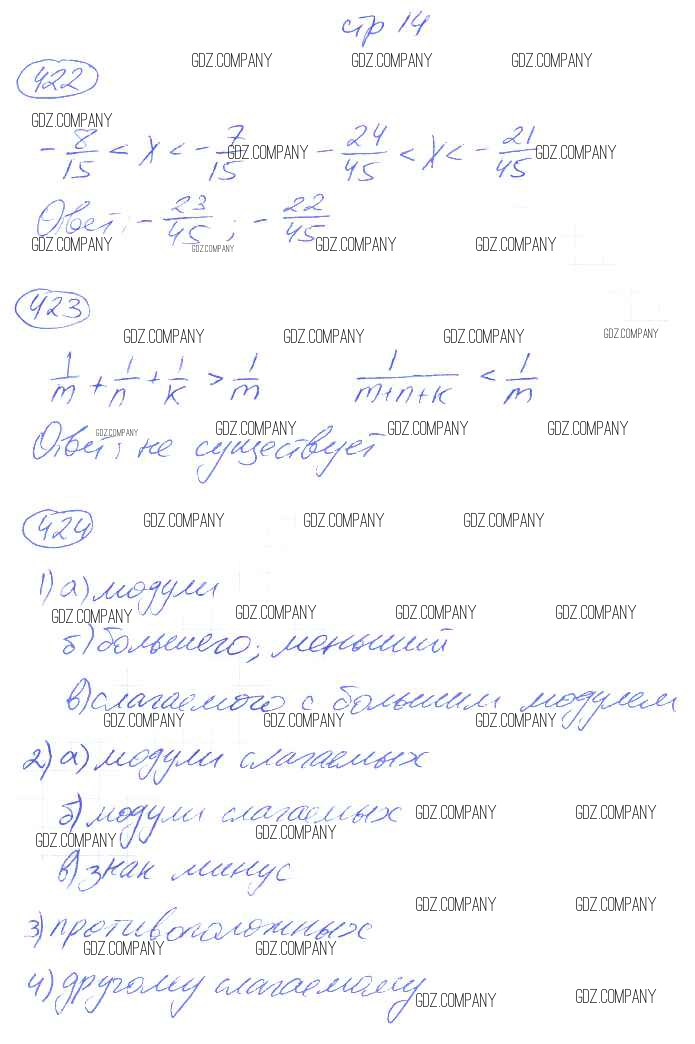 стр 14
GDZ.COMPANY GDZ.COMPANY GDZ.COMPANY
422
GDZ.COMPANY
-8/15 < X < -7/15 GDZ.COMPANY -24/45 < X < -21/45 GDZ.COMPANY
Ответ: -23/45; -22/45
GDZ.COMPANY GDZ.COMPANY GDZ.COMPANY GDZ.COMPANY
423
GDZ.COMPANY GDZ.COMPANY GDZ.COMPANY GDZ.COMPANY
1/m + 1/n + 1/k > 1/m 1/(m+n+k) < 1/m
GDZ.COMPANY GDZ.COMPANY GDZ.COMPANY GDZ.COMPANY
Ответ: не существует
424 GDZ.COMPANY GDZ.COMPANY GDZ.COMPANY
1) а) модули
GDZ.COMPANY GDZ.COMPANY GDZ.COMPANY GDZ.COMPANY
б) большего; меньший
в) слагаемого с большим модулем
GDZ.COMPANY GDZ.COMPANY GDZ.COMPANY
2) а) модули слагаемых
б) модули слагаемых GDZ.COMPANY GDZ.COMPANY
GDZ.COMPANY GDZ.COMPANY
в) знак минус
GDZ.COMPANY GDZ.COMPANY
3) противоположных
GDZ.COMPANY GDZ.COMPANY
4) другому слагаемому
GDZ.COMPANY GDZ.COMPANY